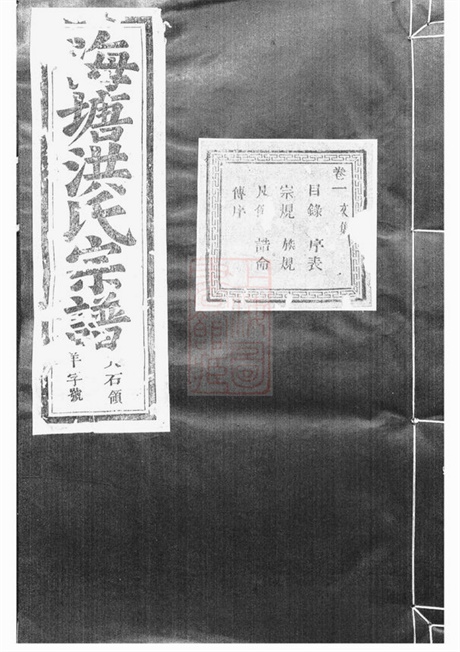 海塘洪氏宗譜
石領
羊字號
卷一
目錄 序文
宗規 族規
凡例 誥命
傳序